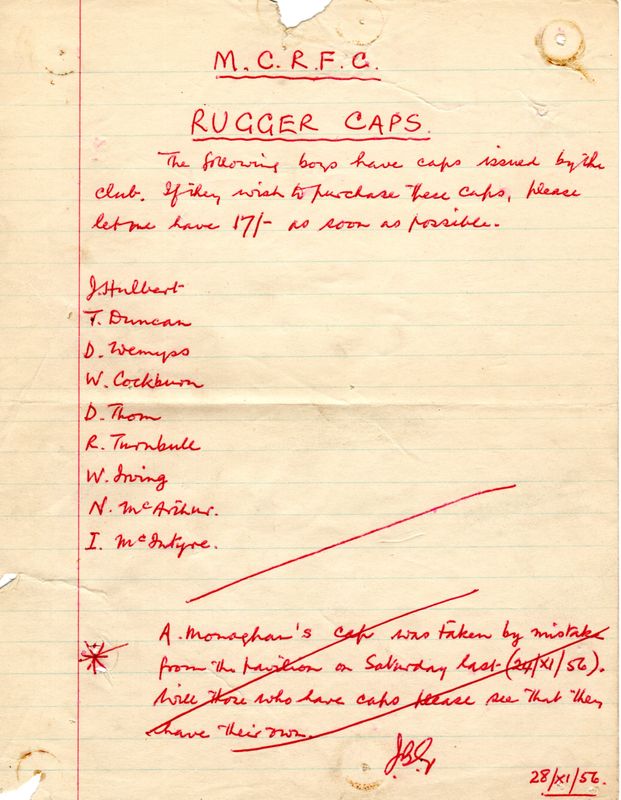 M.C.R.F.C.
RUGGER CAPS.
The following boys have caps issued by the
club. If they wish to purchase these caps, please
let me have 17/- as soon as possible.
J. Hulbert
T. Duncan
D. Wemyss
W. Cockburn
D. Thom
R. Turnbull
W. Irving
N. McArthur.
I. McIntyre.
A. Monaghan's cap was taken by mistake
from the pavilion on Saturday last (24/XI/56).
Will those who have caps please see that they
have their own.
28/XI/56.